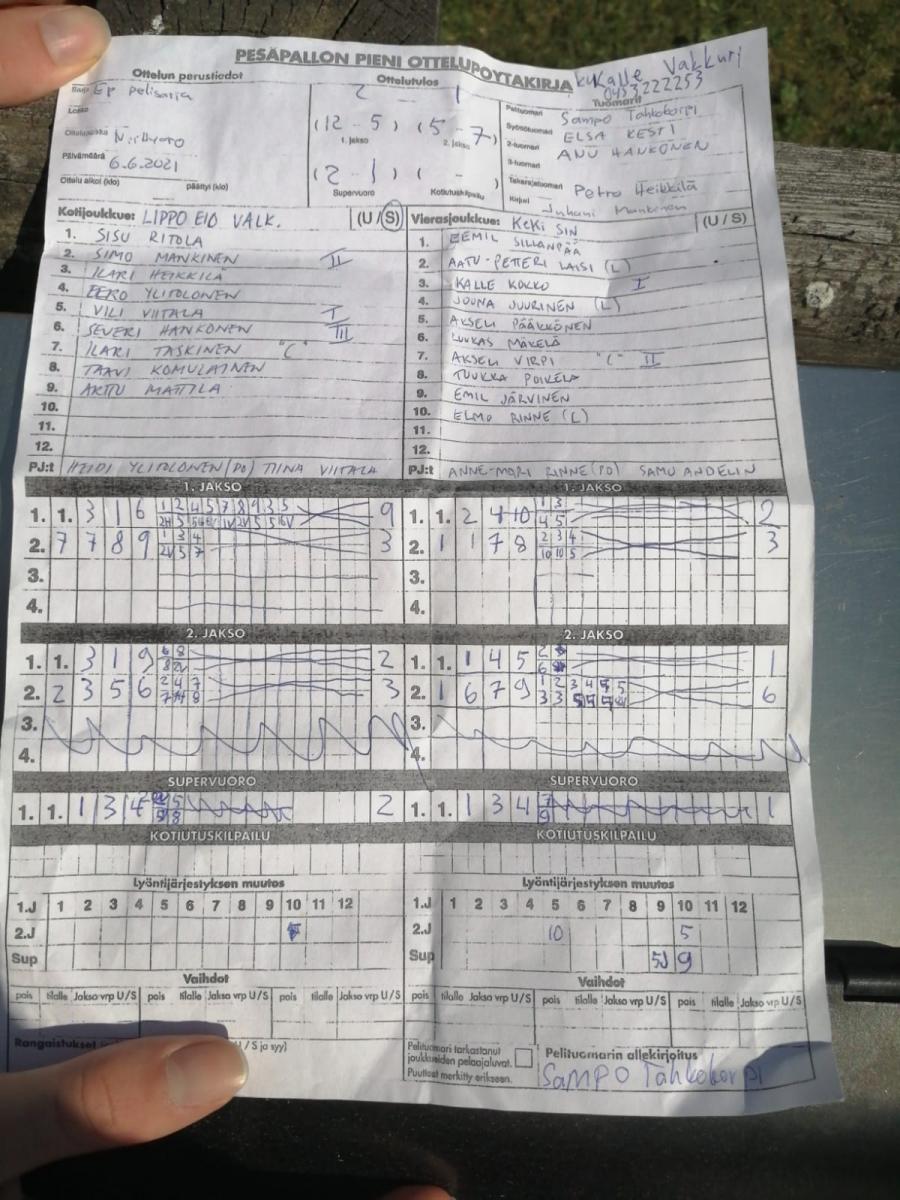 PESÄPALLON PIENI OTTELUPÖYTÄKIRJA
Kalle Vakkuri
0453222253
Ottelun perustiedot
Ottelutulos
Tuomarit
Sarja EP pelisarja
Lohko
Ottelupaikka
Päivämäärä 6.6.2021
Ottelu alkoi (klo) päättyi (klo)
2 - 1
(12 - 5) (5 - 7)
1. jakso 2. jakso
(2 - 1) ( - )
Supervuoro Kotiutuskilpailu
Pelituomari Sampo Tahkokorpi
Syöttötuomari ELSA KESTI
2-tuomari ANU HANKONEN
3-tuomari
Takarajatuomari Petro Heikkilä
Kirjuri Juhani Mankinen
Kotijoukkue: LIPPO E10 VALK. (U / S)
1. SISU RITOLA
2. SIMO MANKINEN II
3. ILARI HEIKKILÄ
4. EERO YLITOLONEN
5. VILI VIITALA I
6. SEVERI HANKONEN III
7. ILARI TASKINEN "C"
8. TAAVI KOMULAINEN
9. ARTTU MATTILA
10.
11.
12.
PJ:t HEIDI YLITOLONEN (PO) TIINA VIITALA
Vierasjoukkue: KeKi SIN (U / S)
1. EEMIL SILLANPÄÄ
2. AATU-PETTERI LAISI (L)
3. KALLE KOKKO I
4. JOUNA JUURINEN (L)
5. AKSELI PÄÄKKÖNEN
6. LUUKAS MÄKELÄ
7. AKSELI VIRPI "C" II
8. TUUKKA POIKELA
9. EMIL JÄRVINEN
10. ELMO RINNE (L)
11.
12.
PJ:t ANNE-MARI RINNE (PO) SAMU ANDELIN
1. JAKSO
1. 1. 3 1 6 1 2 4 5 7 8 9 3 5 9
2. 7 7 8 9 1 3 4 3
2V 5 7
3.
4.
1. JAKSO
1. 1. 2 4 10 1 3 2
4 5
2. 1 1 7 8 2 3 4 3
10 10 5
3.
4.
2. JAKSO
1. 1. 3 1 9 6 8 2
8 2V
2. 2 3 5 6 2 4 7 3
3.
4.
2. JAKSO
1. 1. 1 4 5 2 1
6
2. 1 6 7 9 1 2 3 4 5 5 6
3.
4.
SUPERVUORO
1. 1. 1 3 4 5 2
9 8
SUPERVUORO
1. 1. 1 3 4 7 1
9
KOTIUTUSKILPAILU
KOTIUTUSKILPAILU
Lyöntijärjestyksen muutos
1.J 1 2 3 4 5 6 7 8 9 10 11 12
2.J
Sup
Lyöntijärjestyksen muutos
1.J 1 2 3 4 5 6 7 8 9 10 11 12
2.J 10 5
Sup 9
Vaihdot
pois tilalle Jakso vrp U/S pois tilalle Jakso vrp U/S pois tilalle Jakso vrp U/S
Vaihdot
pois tilalle Jakso vrp U/S pois tilalle Jakso vrp U/S pois tilalle Jakso vrp U/S
Rangaistukset / S ja syy)
Pelituomari tarkastanut
joukkueiden pelaajaluvat.
Puutteet merkitty erikseen.
Pelituomarin allekirjoitus
SAMPO Tahkokorpi